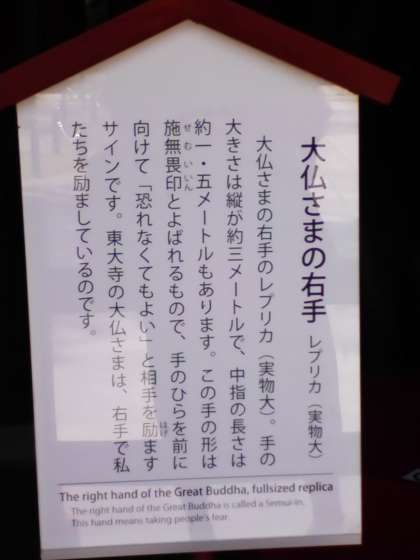 大仏さまの右手 レプリカ（実物大）
大仏さまの右手のレプリカ（実物大）。手の
大きさは縦が約三メートルで、中指の長さは
約一・五メートルもあります。この手の形は
施無畏印とよばれるもので、手のひらを前に
せむいいん
向けて「恐れなくてもよい」と相手を励ます
はげ
サインです。東大寺の大仏さまは、右手で私
たちを励ましているのです。
The right hand of the Great Buddha, fullsized replica
The right hand of the Great Buddha is called a Semui-in.
This hand means taking people's fear.